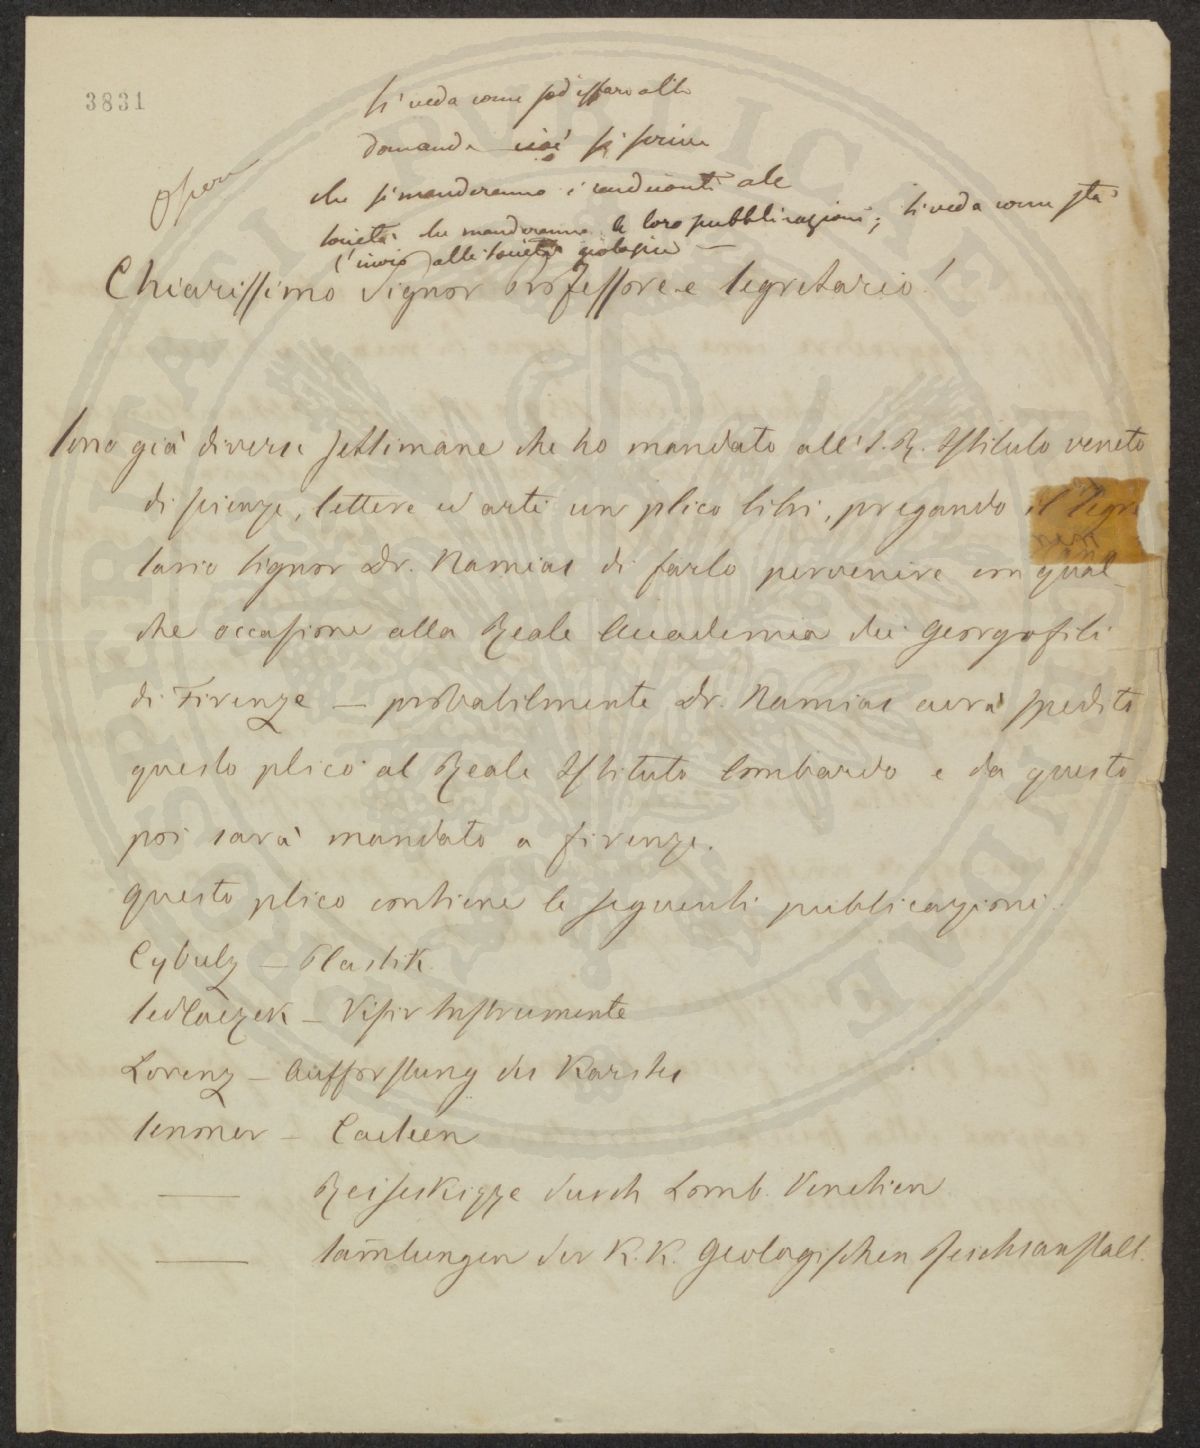 3831
si veda come sodisfare alla
domanda cioè si scriva
che si manderanno i rendiconti alle
società che manderanno le loro pubblicazioni; si veda come sta
l'invio alle società geologiche —
Chiarissimo Signor Professore e Segretario!
Sono già diverse settimane che ho mandato all'I. R. Istituto veneto
di scienze, lettere ed arti un plico libri, pregando il Segre
tario Signor Dr. Namias di farlo pervenire con qual-
che occasione alla Reale Accademia dei Georgofili
di Firenze — probabilmente Dr. Namias avrà spedito
questo plico al Reale Istituto Lombardo e da questo
poi sarà mandato a Firenze.
Questo plico contiene le seguenti pubblicazioni.
Cybulz — Plastik
Sedlaczek — Visir Instrumente
Lorenz — Aufforstung des Karstes
Senoner — Cacteen
— Reiseskizze durch Lomb. Venetien
— Sam̅lungen der K. K. Geologischen Reichsanstalt.